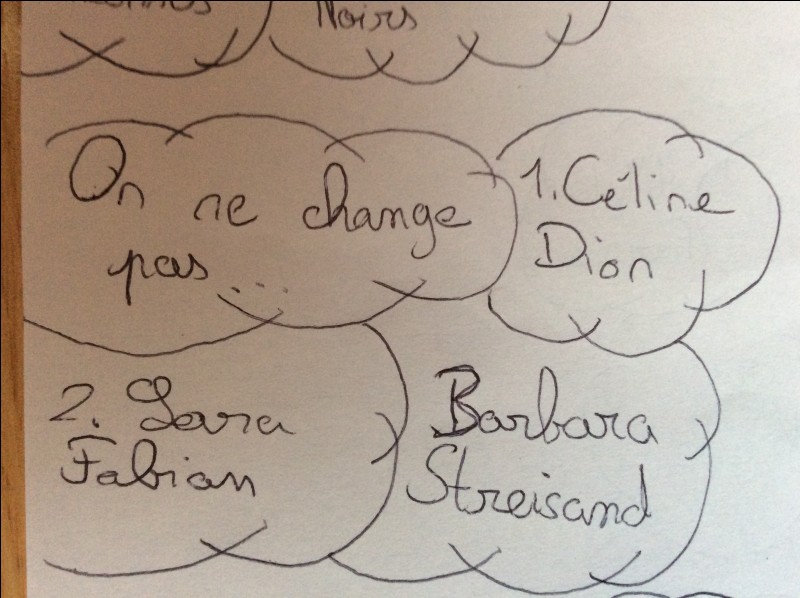 Noirs
On ne change
pas...
1. Céline
Dion
2. Lara
Fabian
Barbara
Streisand